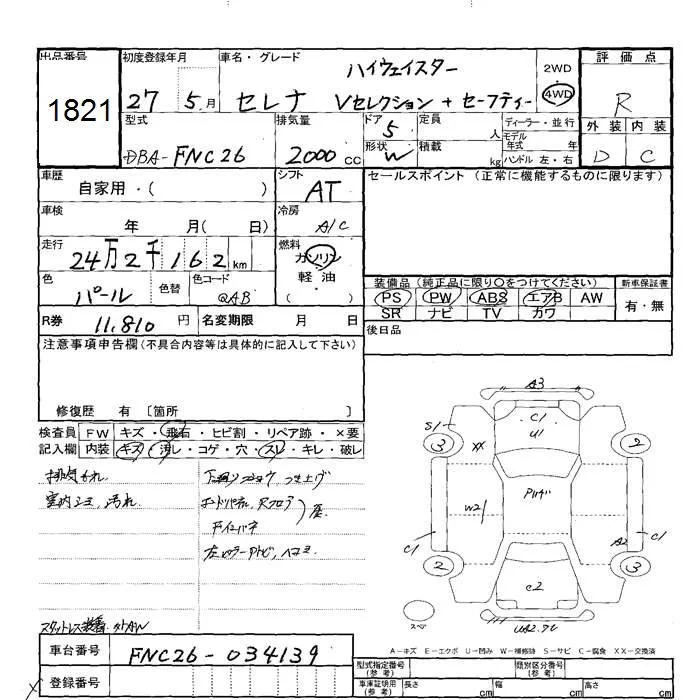 出品番号
1821
初度登録年月
27 5月
車名・グレード
ハイウェイスター
セレナ Vセレクション + セーフティー
2WD
4WD
評価点
R
外装 内装
D C
型式
DBA-FNC26
排気量
2000 cc
ドア 5
形状 W
定員 人
積載 kg
ディーラー・並行
モデル年式 年
ハンドル 左・右
車歴
自家用・( )
シフト
AT
セールスポイント (正常に機能するものに限ります)
車検
年 月( 日)
冷房
A/C
走行
24万2千162km
燃料
ガソリン
軽油
( )
色
パール
色替
色コード
QAB
装備品 (純正品に限り○をつけてください)
PS PW ABS エアB AW
SR ナビ TV カワ
新車保証書
有・無
R券 11,810 円
名変期限 月 日
後日品
注意事項申告欄(不具合内容等は具体的に記入して下さい)
修復歴 有 〔箇所 〕
検査員記入欄
FW キズ・飛石・ヒビ割・リペア跡・×要
内装 キズ・汚レ・コゲ・穴・スレ・キレ・破レ
室内シミ、汚れ
A3
C1
U1
S1
XX
3
2
W2
C1
C1
A2
2
3
C2
スペ
A-キズ E-エクボ U-凹み W-補修跡 S-サビ C-腐食 XX-交換済
車台番号 FNC26-034139
登録番号
型式指定番号(参考)
類別区分番号(参考)
車庫証明用(参考) 長さ cm 幅 cm 高さ cm